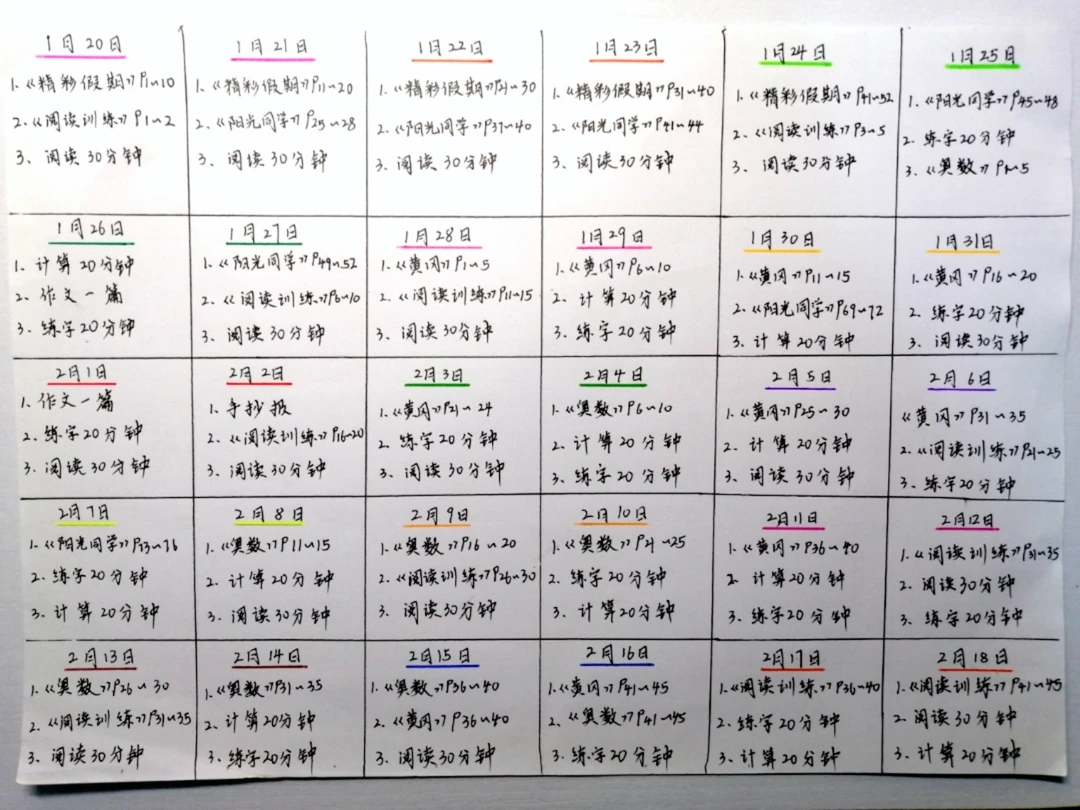 1月20日
1.《精彩假期》P1~10
2.《阅读训练》P1~2
3、阅读30分钟
1月21日
1.《精彩假期》P11~20
2.《阳光同学》P25~28
3、阅读30分钟
1月22日
1.《精彩假期》P21~30
2.《阳光同学》P37~40
3、阅读30分钟
1月23日
1.《精彩假期》P31~40
2.《阳光同学》P41~44
3、阅读30分钟
1月24日
1.《精彩假期》P41~52
2.《阅读训练》P3~5
3、阅读30分钟
1月25日
1.《阳光同学》P45~48
2、练字20分钟
3.《奥数》P1~5
1月26日
1、计算20分钟
2、作文一篇
3、练字20分钟
1月27日
1.《阳光同学》P49~52
2.《阅读训练》P6~10
3、阅读30分钟
1月28日
1.《黄冈》P1~5
2.《阅读训练》P11~15
3、阅读30分钟
1月29日
1.《黄冈》P6~10
2、计算20分钟
3、练字20分钟
1月30日
1.《黄冈》P11~15
2.《阳光同学》P69~72
3、计算20分钟
1月31日
1.《黄冈》P16~20
2、练字20分钟
3、阅读30分钟
2月1日
1、作文一篇
2、练字20分钟
3、阅读30分钟
2月2日
1、手抄报
2、《阅读训练》P16~20
3、阅读30分钟
2月3日
1.《黄冈》P21~24
2、练字20分钟
3、阅读30分钟
2月4日
1.《奥数》P6~10
2、计算20分钟
3、练字20分钟
2月5日
1.《黄冈》P25~30
2、计算20分钟
3、阅读30分钟
2月6日
《黄冈》P31~35
2.《阅读训练》P21~25
3、练字20分钟
2月7日
1.《阳光同学》P73~76
2、练字20分钟
3、计算20分钟
2月8日
1.《奥数》P11~15
2、计算20分钟
3、阅读30分钟
2月9日
1.《奥数》P16~20
2.《阅读训练》P26~30
3、阅读30分钟
2月10日
1.《奥数》P21~25
2、练字20分钟
3、计算20分钟
2月11日
1.《黄冈》P36~40
2、计算20分钟
3、练字20分钟
2月12日
1.《阅读训练》P31~35
2、阅读30分钟
3、练字20分钟
2月13日
1.《奥数》P26~30
2.《阅读训练》P31~35
3、阅读30分钟
2月14日
1.《奥数》P31~35
2、计算20分钟
3、练字20分钟
2月15日
1.《奥数》P36~40
2.《黄冈》P36~40
3、阅读30分钟
2月16日
1.《黄冈》P41~45
2.《奥数》P41~45
3、练字20分钟
2月17日
1.《阅读训练》P36~40
2、练字20分钟
3、计算20分钟
2月18日
1.《阅读训练》P41~45
2、阅读30分钟
3、计算20分钟